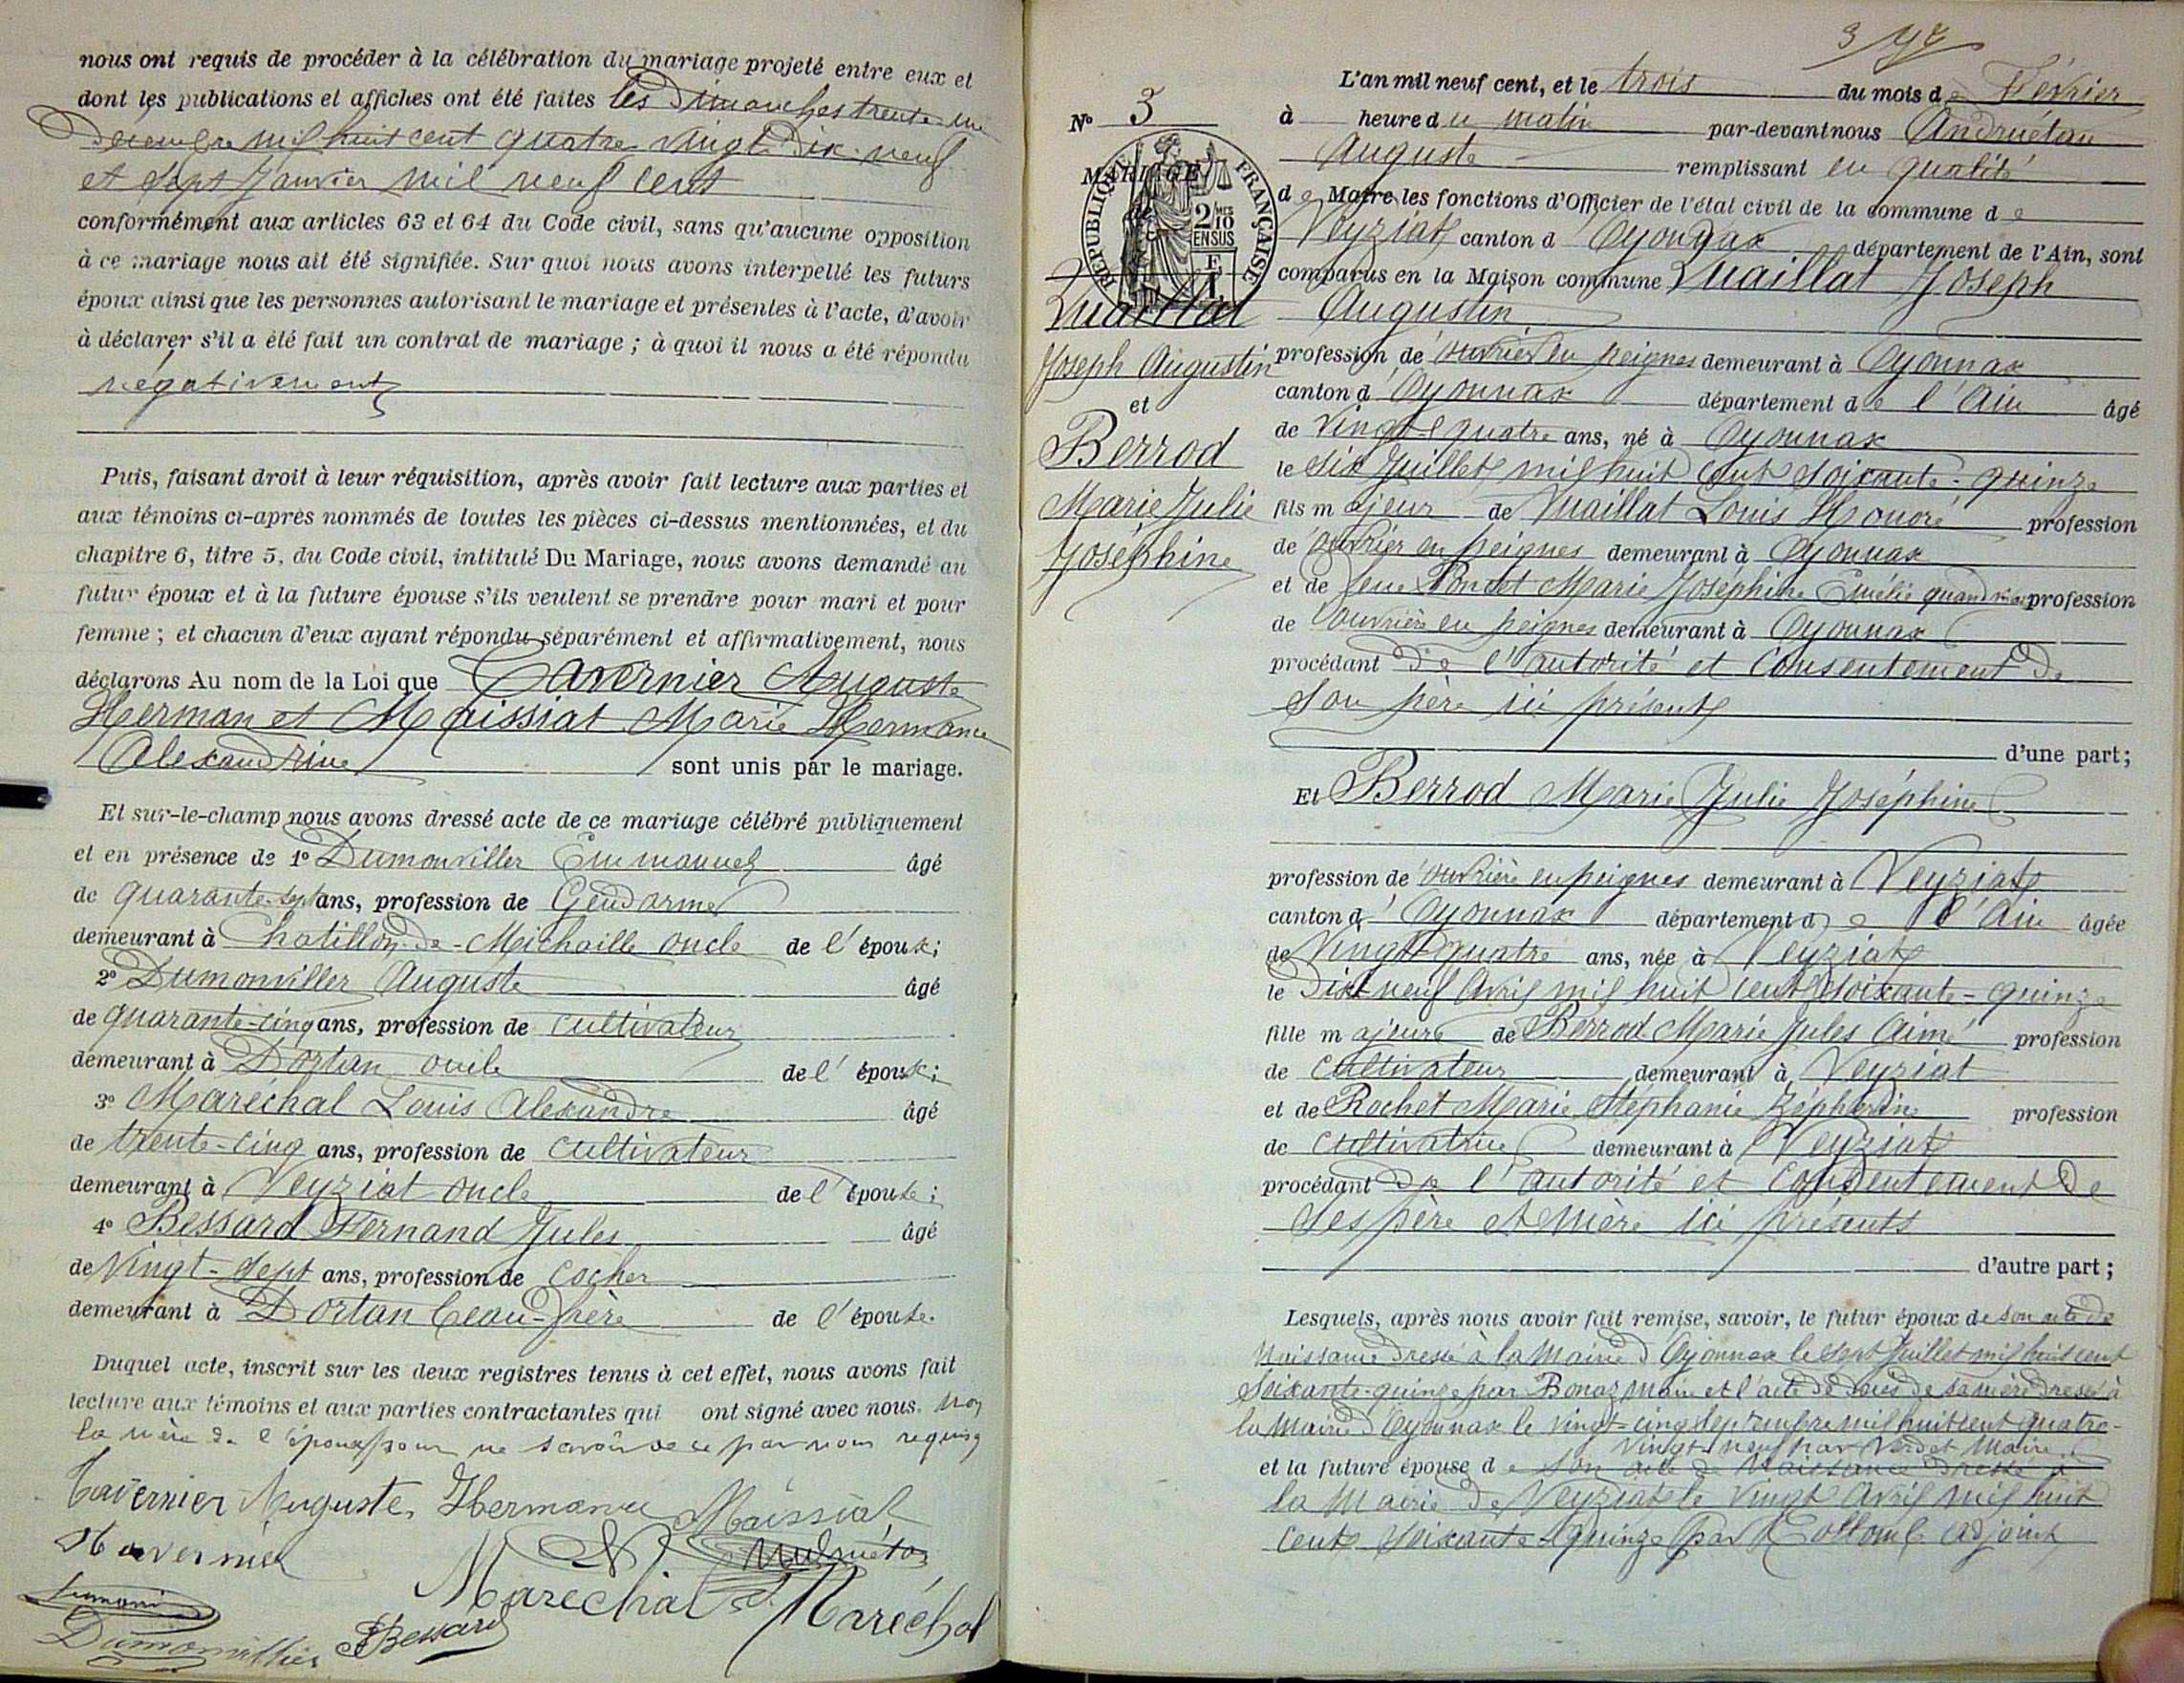 nous ont requis de procéder à la célébration du mariage projeté entre eux et
dont les publications et affiches ont été faites les Dimanches trente-un
Décembre mil huit cent quatre vingt Dix-neuf
et sept Janvier mil neuf cent
conformément aux articles 63 et 64 du Code civil, sans qu'aucune opposition
à ce mariage nous ait été signifiée. Sur quoi nous avons interpellé les futurs
époux ainsi que les personnes autorisant le mariage et présentes à l'acte, d'avoir
à déclarer s'il a été fait un contrat de mariage ; à quoi il nous a été répondu
négativement
Puis, faisant droit à leur réquisition, après avoir fait lecture aux parties et
aux témoins ci-après nommés de toutes les pièces ci-dessus mentionnées, et du
chapitre 6, titre 5, du Code civil, intitulé Du Mariage, nous avons demandé au
futur époux et à la future épouse s'ils veulent se prendre pour mari et pour
femme ; et chacun d'eux ayant répondu séparément et affirmativement, nous
déclarons Au nom de la Loi que Tavernier Auguste
Herman et Maissiat Marie Hermance
Alexandrine sont unis par le mariage.
Et sur-le-champ nous avons dressé acte de ce mariage célébré publiquement
et en présence de 1° Dumonviller Emmanuel âgé
de quarante-sept ans, profession de Gendarme
demeurant à Chatillon-de-Michaille oncle de l'époux ;
2° Dumonviller Auguste âgé
de quarante-cinq ans, profession de cultivateur
demeurant à Dortan oncle de l'époux ;
3° Maréchal Louis Alexandre âgé
de trente-cinq ans, profession de cultivateur
demeurant à Veyziat oncle de l'épouse ;
4° Bessard Fernand Jules âgé
de Vingt-sept ans, profession de Cocher
demeurant à Dortan beau-frère de l'épouse.
Duquel acte, inscrit sur les deux registres tenus à cet effet, nous avons fait
lecture aux témoins et aux parties contractantes qui ont signé avec nous. Non
la mère de l'époux pour ne savoir de ce par nous requise
Tavernier Auguste, Hermance Maissiat
H Tavernier Andruétan
Marechal Maréchal
Dumonvillier FBessard
3
L'an mil neuf cent, et le trois du mois de Février
N° 3 à heure du matin par-devant nous Andruétan
Auguste remplissant en qualité
MARIAGE de Maire les fonctions d'Officier de l'état civil de la commune de
RÉPUBLIQUE FRANÇAISE
2/10 MES
EN SUS
Veyziat canton d'Oyonnax département de l'Ain, sont
comparus en la Maison commune Vuaillat Joseph
Vuaillat Augustin
Joseph Augustin profession de ouvrier en peignes demeurant à Oyonnax
et canton d'Oyonnax département de l'Ain âgé
Berrod de Vingt-quatre ans, né à Oyonnax
le six Juillet mil huit cent soixante-quinze
Marie Julie fils majeur de Vuaillat Louis Honoré profession
Joséphine de ouvrier en peignes demeurant à Oyonnax
et de feue Poncet Marie Joséphine Emélie quand vivait profession
de ouvrière en peignes demeurant à Oyonnax
procédant de l'autorité et consentement de
son père ici présent
d'une part ;
Et Berrod Marie Julie Joséphine
profession de ouvrière en peignes demeurant à Veyziat
canton d'Oyonnax département de l'Ain âgée
de Vingt-quatre ans, née à Veyziat
le Dix neuf Avril mil huit cent soixante-quinze
fille majeure de Berrod Marie Jules Aimé profession
de cultivateur demeurant à Veyziat
et de Rochet Marie Stéphanie Zéphirine profession
de cultivatrice demeurant à Veyziat
procédant de l'autorité et consentement de
ses père et mère ici présents
d'autre part ;
Lesquels, après nous avoir fait remise, savoir, le futur époux de son acte de
naissance dressé à la Mairie d'Oyonnax le sept Juillet mil huit cent
soixante-quinze par Bonaz maire et l'acte de décès de sa mère dressé à
la Mairie d'Oyonnax le vingt-cinq septembre mil huit cent quatre-
vingt-neuf par Verdet Maire.
et la future épouse de son acte de naissance dressé à
la Mairie de Veyziat le vingt Avril mil huit
cent soixante-quinze par Collomb adjoint